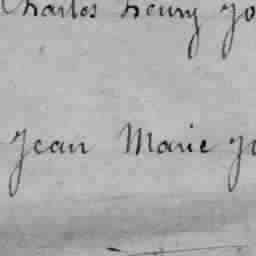 Charles henry
Jean Marie